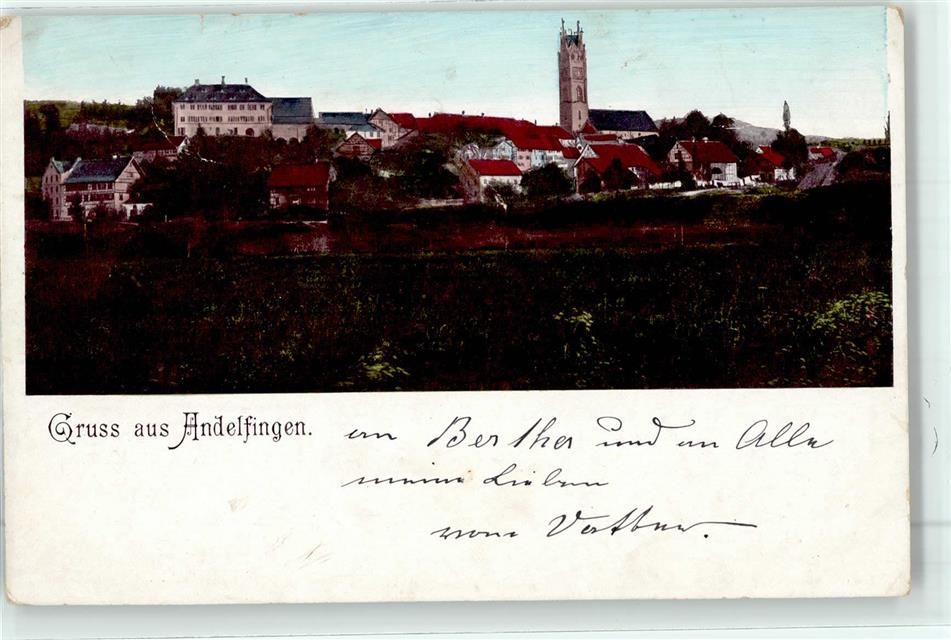 Gruss aus Andelfingen. an Bertha und an Alle
meine Lieben
vom Vatter.